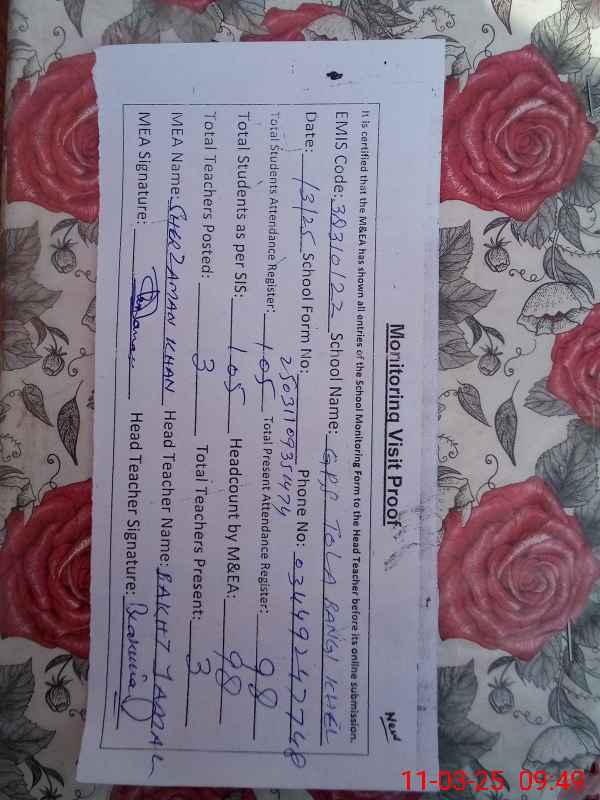 New
Monitoring Visit Proof
It is certified that the M&EA has shown all entries of the School Monitoring Form to the Head Teacher before its online submission.
EMIS Code: 38310122 School Name: GPS TOLA BANGI KHEL
Date: 1/3/25 School Form No: 2503110935474 Phone No: 03449247748
Total Students Attendance Register: 105 Total Present Attendance Register: 98
Total Students as per SIS: 105 Headcount by M&EA: 98
Total Teachers Posted: 3 Total Teachers Present: 3
MEA Name: SHER ZAMAN KHAN Head Teacher Name: BAKHT JAMAL
MEA Signature: Head Teacher Signature:
11-03-25 09:49